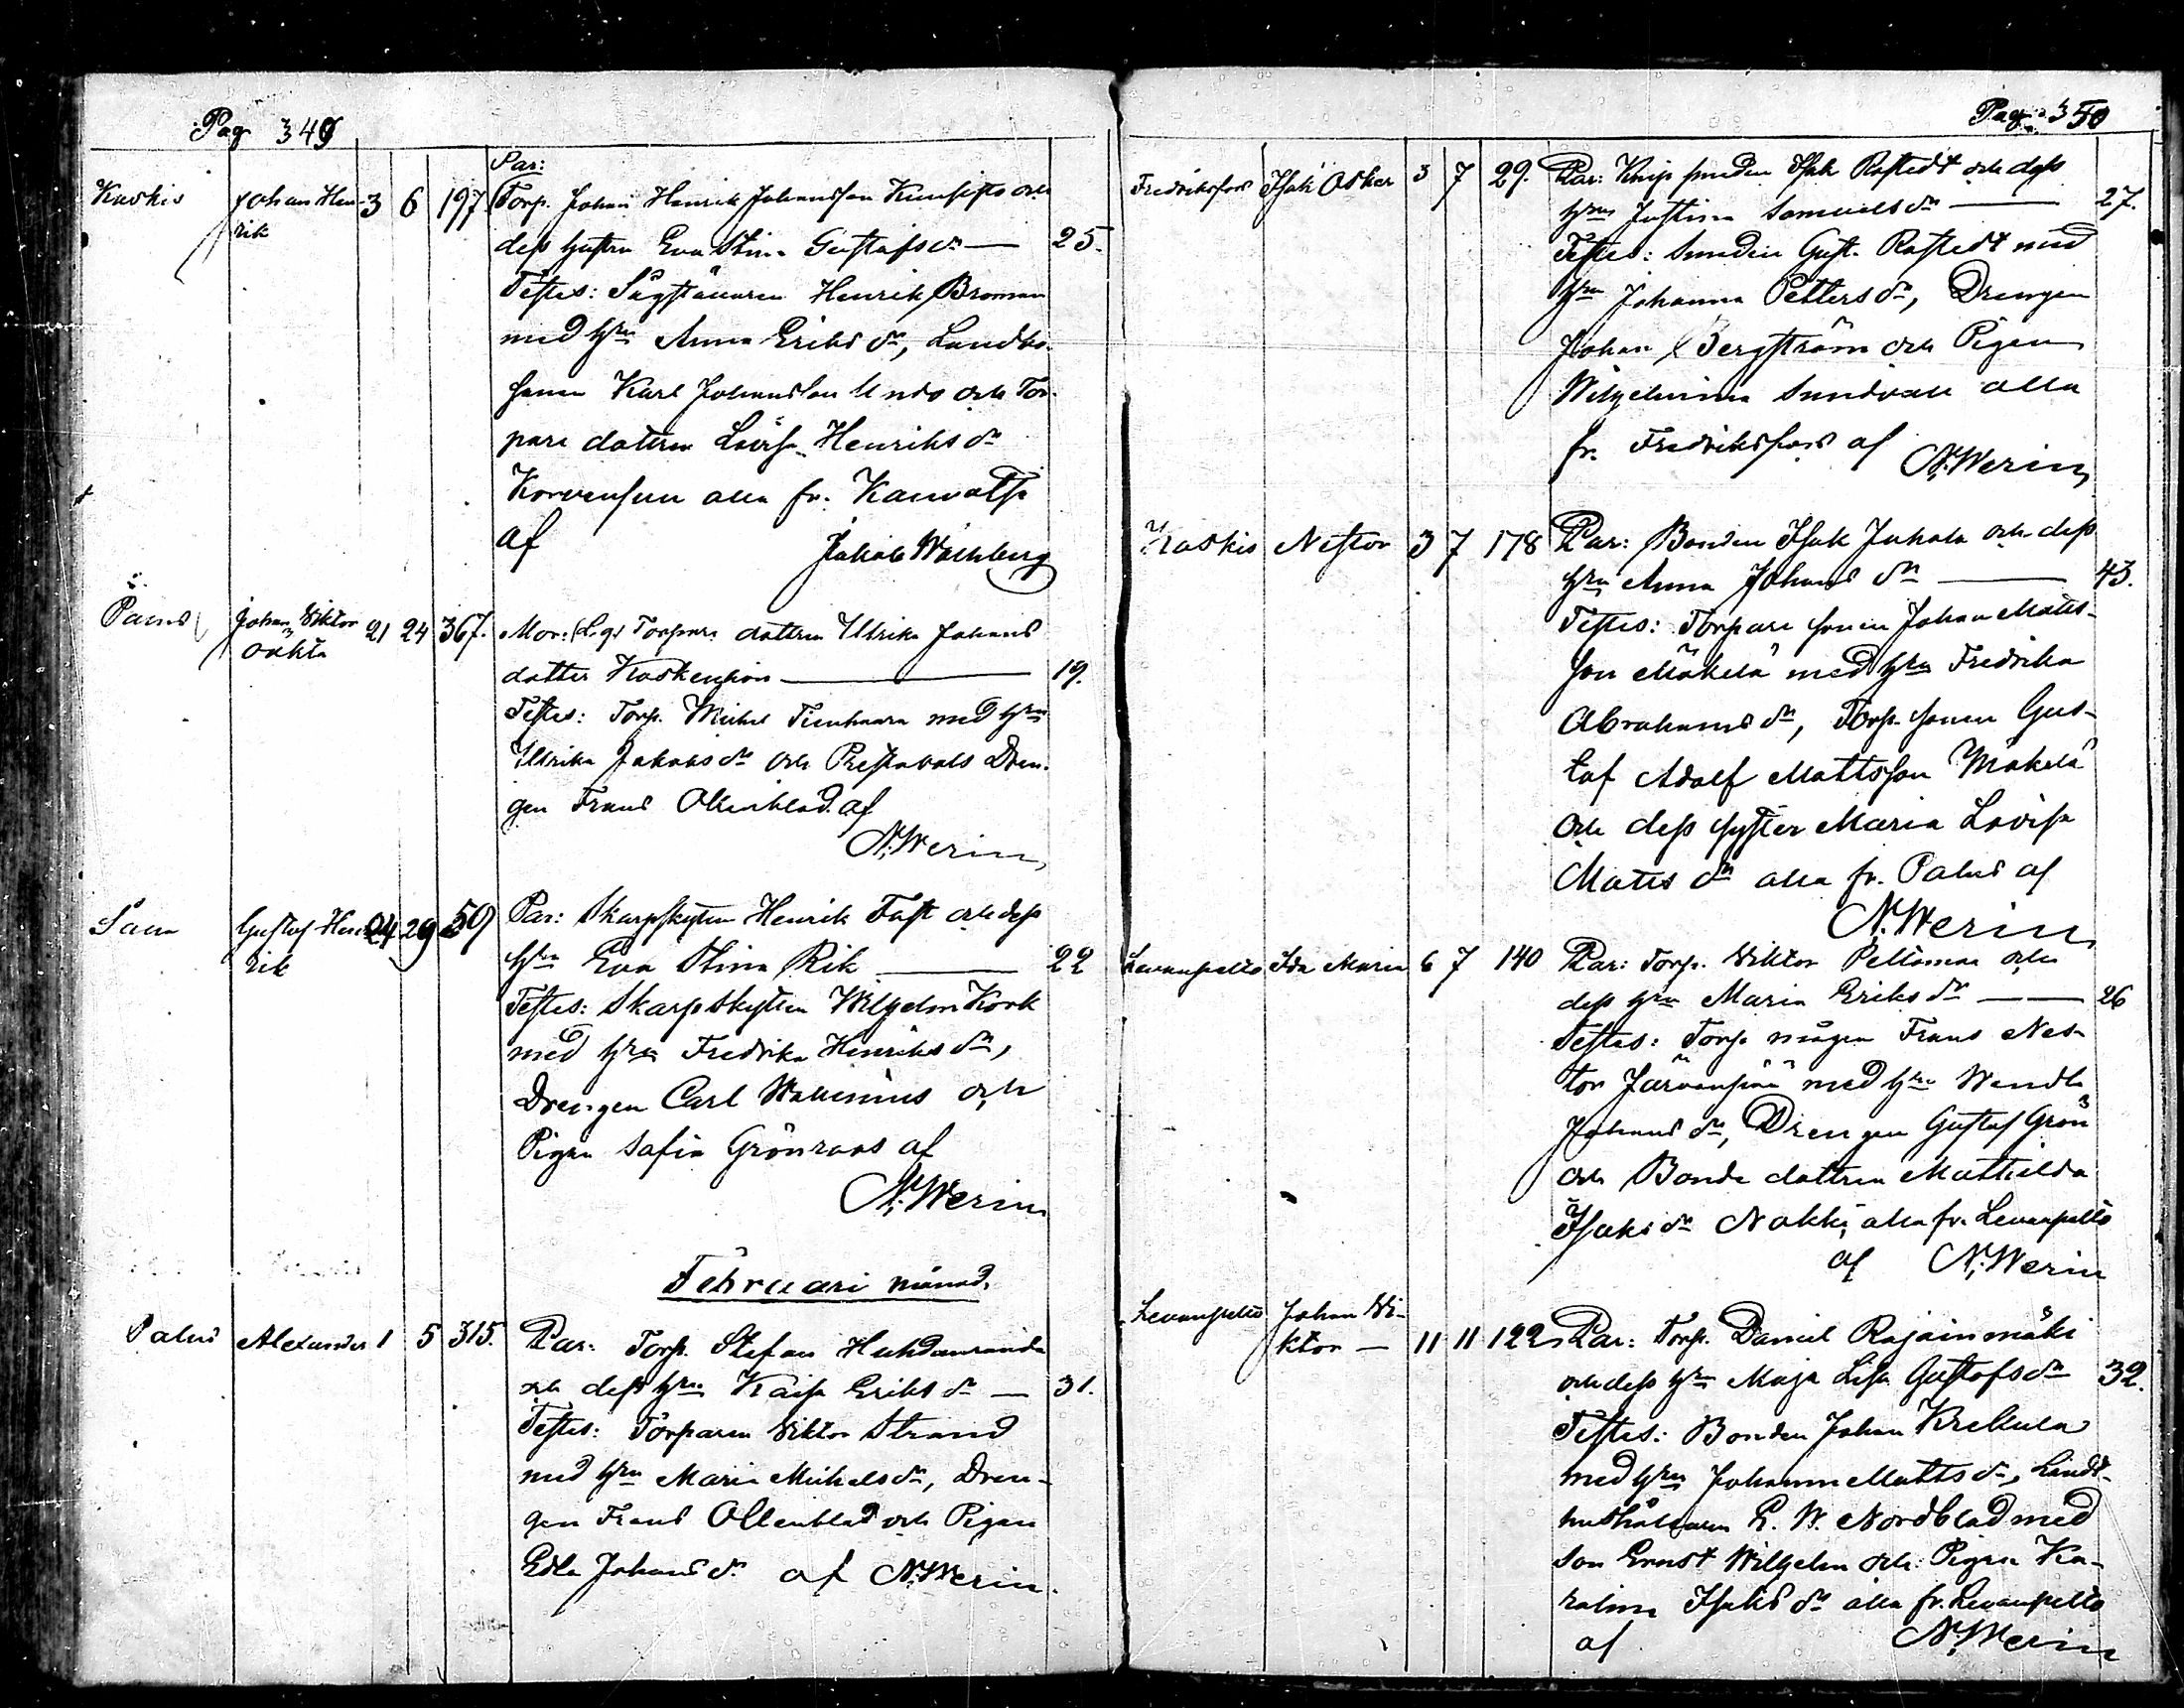 Pag 349
Kaskis Johan Hen- 3 6 197 Par:
rik Torp. Johan Henrik Johansson och
dess hustru Eva Stina Gustafs dr — 25.
Testes: Henrik Broman
med hru Anna Eriks dr, Landbo-
sonen Karl Johansson och Tor-
pare dottren Lovisa Henriks dr
alla fr.
af Jakob Wachberg
Johan Viktor 21 24 367. Mor: Torpare dottren Ulrika Johans
dotter — 19.
Testes: Torp. Michel med hru
Ulrika Jakobs dr och Dren-
gen Frans Ollenblad af
N. Werin
Gustaf Hen- 24 29 59 Par: Skarpskytten Henrik Fast och dess
rik hru Eva Stina Rik — 22
Testes: Skarpskytten Wilhelm Kork
med hru Fredrika Henriks dr,
Drengen Carl och
Pigan Safia Grönroos af
N. Werin
Februari månad.
Palus Alexander 1 5 315. Par: Torp. Stefan
och dess hru Kaisa Eriks dr — 31.
Testes: Torparen Viktor Strand
med hru Maria Michels dr, Dren-
gen Frans Ollenblad och Pigan
Edla Johans dr af N. Werin.
Pag: 350
Fredriksfors Isak Oskar 3 7 29. Par: Isak Rastedt och dess
hru Justina Samuels dr — 27.
Testes: Smeden Gust. Rastedt med
hru Johanna Petters dr, Drengen
Johan Bergström och Pigan
Wilhelmina Sundvall alla
fr. Fredriksfors af N. Werin
Kaskis Nestor 3 7 178 Par: Bonden Isak Juhala och dess
hru Anna Johans dr — 43.
Testes: Torpare sonen Johan Matts-
son Mäkelä med hru Fredrika
Abrahams dr, Torp. sonen Gus-
taf Adolf Mattsson Mäkelä
och dess syster Maria Lovisa
Matts dr alla fr. Palus af
N. Werin
Levanpelto Ida Maria 6 7 140 Par: Torp. Viktor Peltomaa och
dess hru Maria Eriks dr — 26
Testes: Torp. mågen Frans Nes-
tor Järvenpää med hru Wendla
Johans dr, Drengen Gustaf Grön
och Bonde dottren Mathilda
Isaks dr Nokki, alla fr. Levanpelto
af N. Werin
Levanpelto Johan Vi-
ktor — 11 11 122 Par: Torp. Daniel Rajainmäki
och dess hru Maja Lisa Gustafs dr 32.
Testes: Bonden Johan Krekula
med hru Johanna Matts dr, Lands-
hushållaren L. W. Nordblad med
son Ernst Wilhelm och Pigan Ka-
rolina Isaks dr alla fr. Levanpelto
af N. Werin